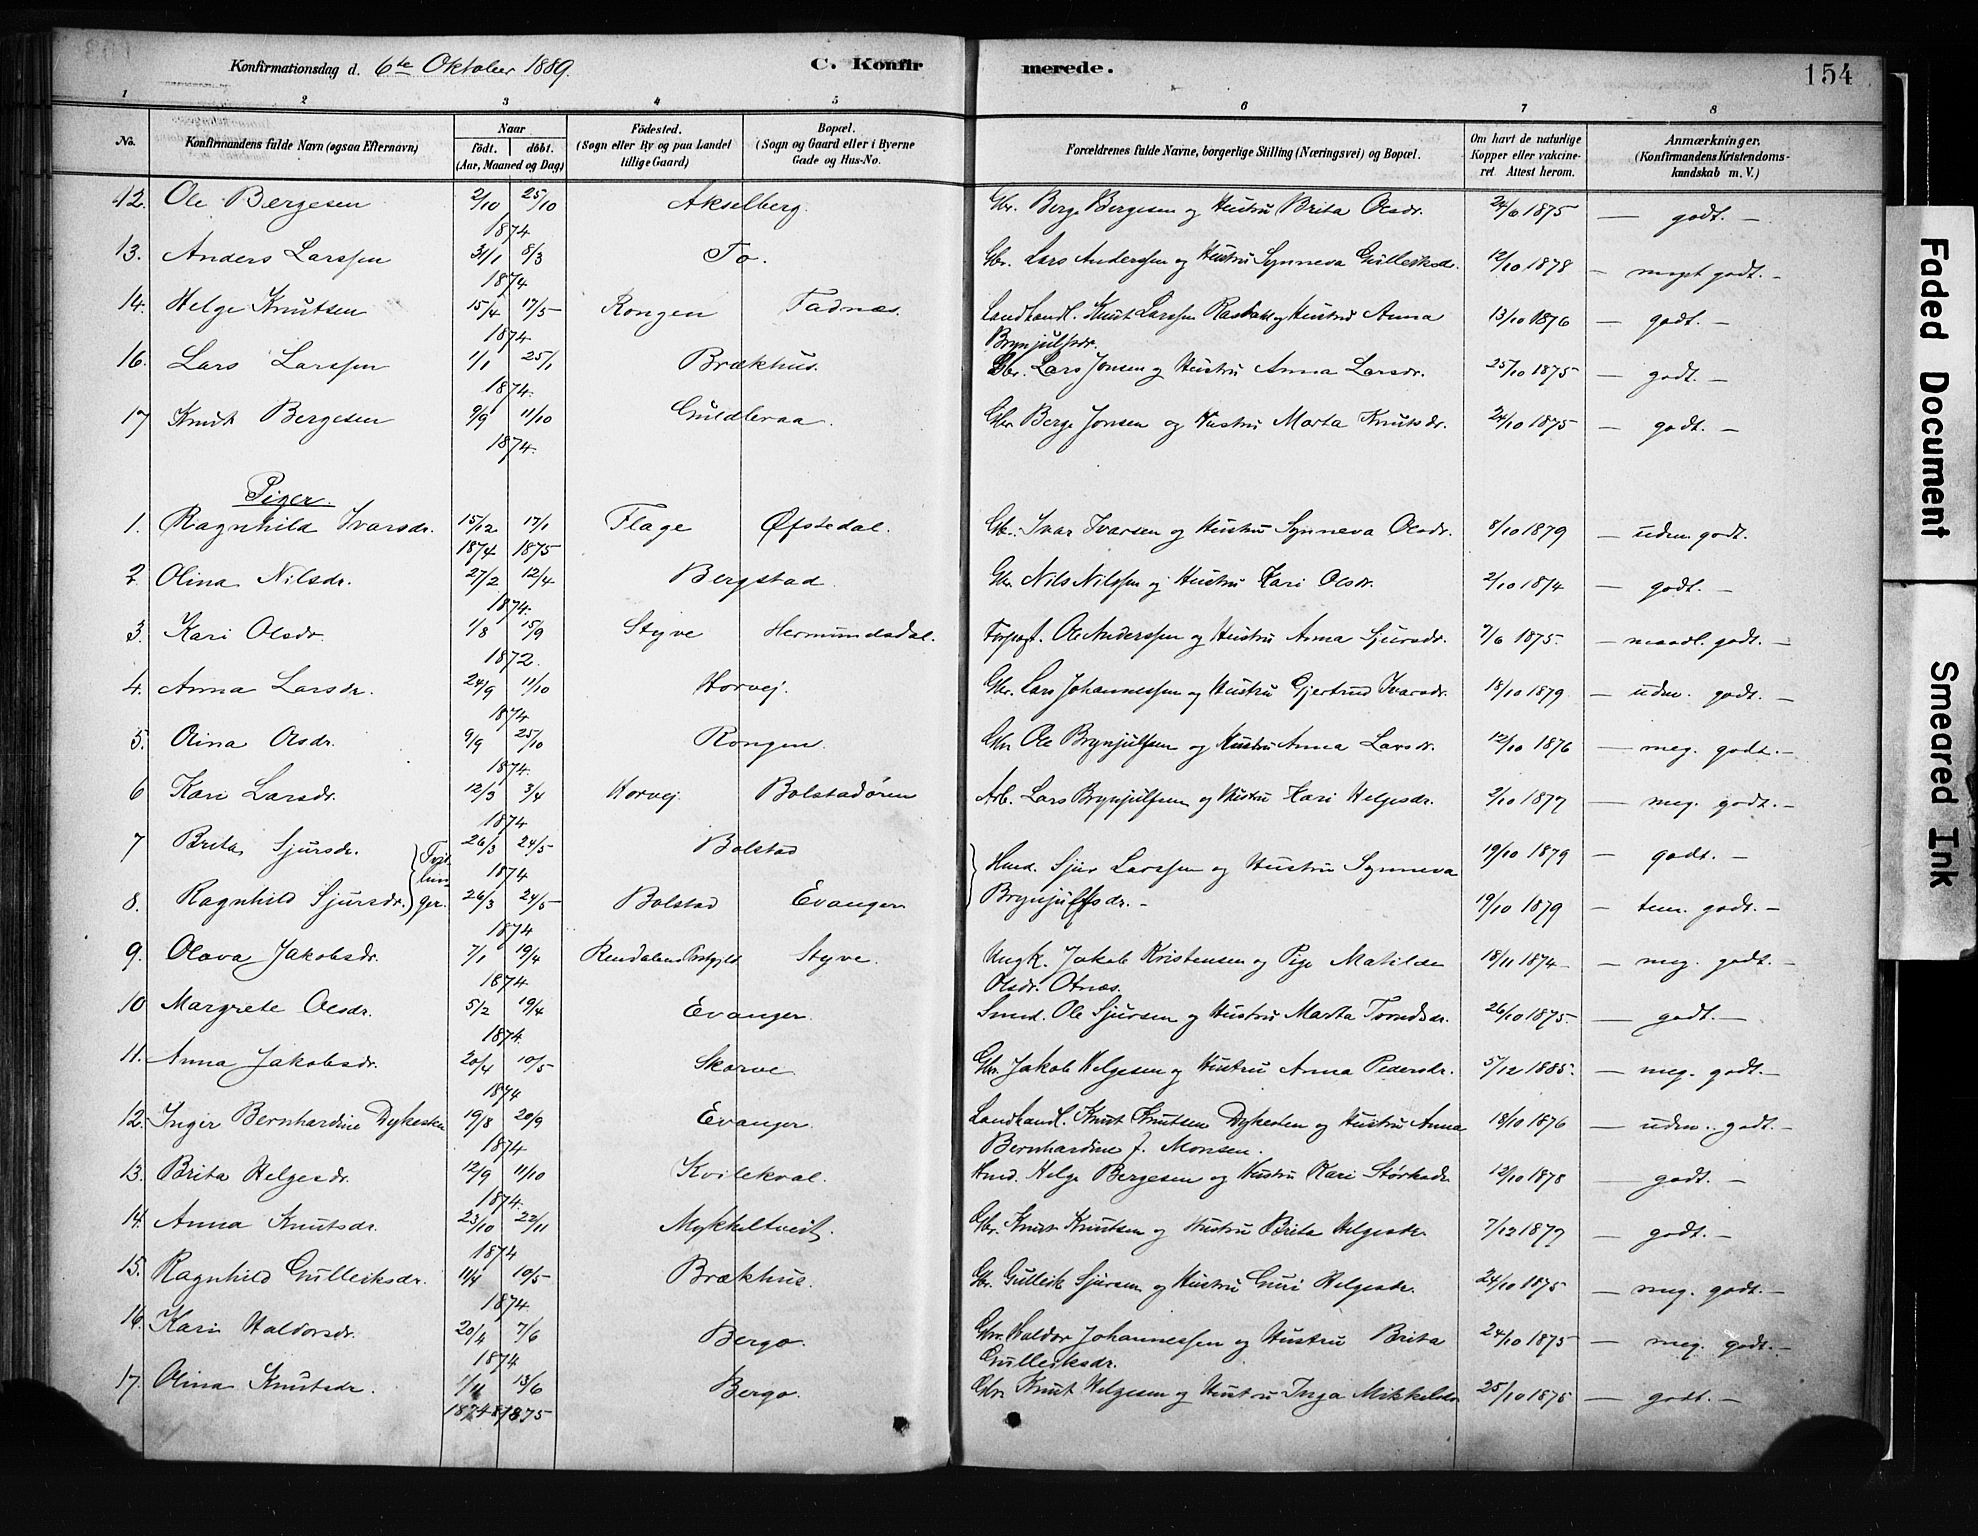 Konfirmationsdag d. 6te Oktober 1889. C. Konfirmerede. 154
1 2 3 4 5 6 7 8
No. Konfirmandens fulde Navn (ogsaa Efternavn) Naar født. døbt. (Aar, Maaned og Dag) Fødested. (Sogn eller By og paa Landet tillige Gaard) Bopæl. (Sogn og Gaard eller i Byerne Gade og Hus-No. Forældrenes fulde Navne, borgerlige Stilling (Næringsvei) og Bopæl. Om havt de naturlige Kopper eller vakcineret. Attest herom. Anmærkninger. (Konfirmandens Kristendomskundskab m. V.)
12. Ole Bergesen 2/10 25/10 1874 Akselberg. Gbr. Berge Bergesen og Hustru Brita Olsdr. 24/6 1875 — godt. —
13. Anders Larssen 31/1 8/3 1874 To. Gbr. Lars Anderssen og Hustru Synneva Gulleiksdr. 12/10 1878 — meget godt. —
14. Helge Knutsen 15/4 17/5 1874 Rongen Fadnæs. Landhandl. Knut Larssen og Hustru Anna Brynjulfsdr. 13/10 1876 — godt. —
16. Lars Larssen 1/1 25/1 1874. Brækhus. Gbr. Lars Jonsen og Hustru Anna Larsdr. 25/10 1875 — godt. —
17 Knut Bergesen 9/9 11/10 1874. Guldbraa. Gbr. Berge Jonsen og Hustru Marta Knutsdr. 24/10 1875 — godt. —
Piger.
1. Ragnhild Ivarsdr. 15/12 1874 17/1 1875 Flage Øfstedal. Gbr. Ivar Ivarsen og Hustru Synneva Olsdr. 8/10 1879 — udm. godt.
2. Olina Nilsdr. 27/2 12/4 1874. Bergstad Gbr. Nils Nilssen og Hustru Kari Olsdr. 2/10 1874 — godt. —
3. Kari Olsdr. 1/8 15/9 1872. Styve Hermundsdal. Forpagt. Ole Anderssen og Hustru Anna Sjursdr. 7/6 1875. — maadl. godt. —
4. Anna Larsdr. 24/9 11/10 1874 Horvej. Gbr. Lars Johannessen og Hustru Gjertrud Ivarsdr. 18/10 1879 — udm. godt. —
5. Olina Olsdr. 9/9 25/10 1874. Rongen. Gbr. Ole Brynjulfsen og Hustru Anna Larsdr. 12/10 1876 — meg. godt. —
6 Kari Larsdr. 12/3 3/4 1874 Horvej Bolstadøren Arb. Lars Brynjulfsen og Hustru Kari Helgesdr. 2/10 1877 — meg. godt. —
7 Brita Sjursdr. 26/3 24/5 1874 Bolstad Hmd. Sjur Larssen og Hustru Synneva 19/10 1879 — godt. —
Tvillinger.
8. Ragnhild Sjursdr. 26/3 24/5 1874 Bolstad Evanger Brynjulfsdr. — 19/10 1879 — tem. godt. —
9. Olava Jakobsdr. 7/1 19/4 1874 Rendalens Styve. Ungk. Jakob Kristensen og Pige Matilde Olsdr. Otnæs. 18/11 1874 — meg. godt. —
10 Margrete Olsdr. 5/2 19/4 1874. Evanger. Smed. Ole Sjursen og Hustru Marta Trondsdr. 26/10 1875. — godt. —
11. Anna Jakobsdr. 20/4 10/5 1874 Skorve. Gbr. Jakob Helgesen og Hustru Anna Pedersdr. 5/12 1885. — meg. godt. —
12. Inger Bernhardine Dykesten 19/8 20/9 1874 Evanger. Landhandl. Knut Knutsen Dykesten og Hustru Anna Bernhardine f. Monsen. 18/10 1876 — udm. godt. —
13. Brita Helgesdr. 12/9 11/10 1874. Kvilekval. Hmd. Helge Bergesen og Hustru Kari Størksdr. 12/10 1878 — godt. —
14. Anna Knutsdr. 23/10 22/11 1874 Mykkeltveit. Gbr. Knut Knutsen og Hustru Brita Helgesdr. 7/12 1877 — godt. —
15. Ragnhild Gulleiksdr. 11/4 10/5 1874. Brækhus. Gbr. Gulleik Sjursen og Hustru Guri Helgesdr. 24/10 1875 — meg. godt. —
16. Kari Haldorsdr. 20/4 7/6 1874 Bergo. Gbr. Haldor Johannessen og Hustru Brita Gulleiksdr. 24/10 1875 — meg. godt. —
17. Olina Knutsdr. 1/11 1874 13/6 1875 Bergo. Gbr. Knut Helgesen og Hustru Inga Mikkelsdr 25/10 1875 — godt. —
Faded Document
Smeared Ink